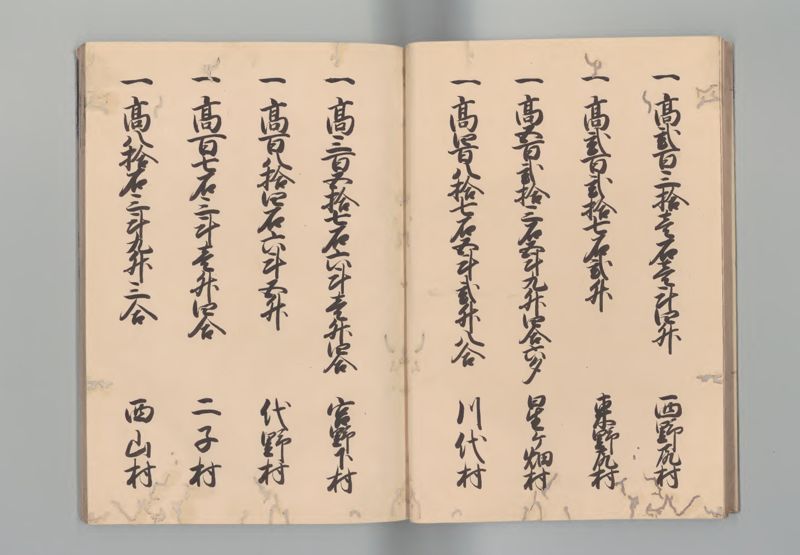 一 高弐百三拾壱石壱斗四升 西野尻村
一 高弐百弐拾七石弐升 東野尻村
一 高五百弐拾三石五斗九升四合六夕 星ヶ畑村
一 高四百八拾七石五斗弐升八合 川代村
一 高三百五拾七石六斗壱升四合 宮野下村
一 高百八拾四石六斗五升 代野村
一 高百七石三斗壱升四合 二子村
一 高八拾石三斗九升三合 西山村